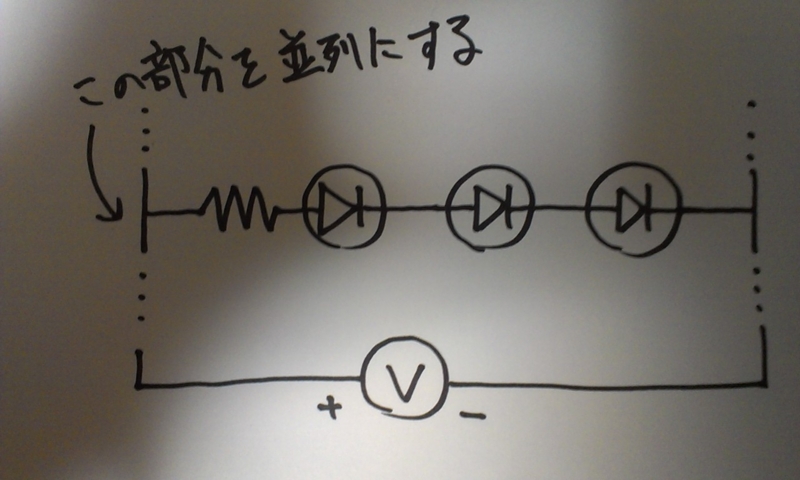 この部分を並列にする
V
+ −